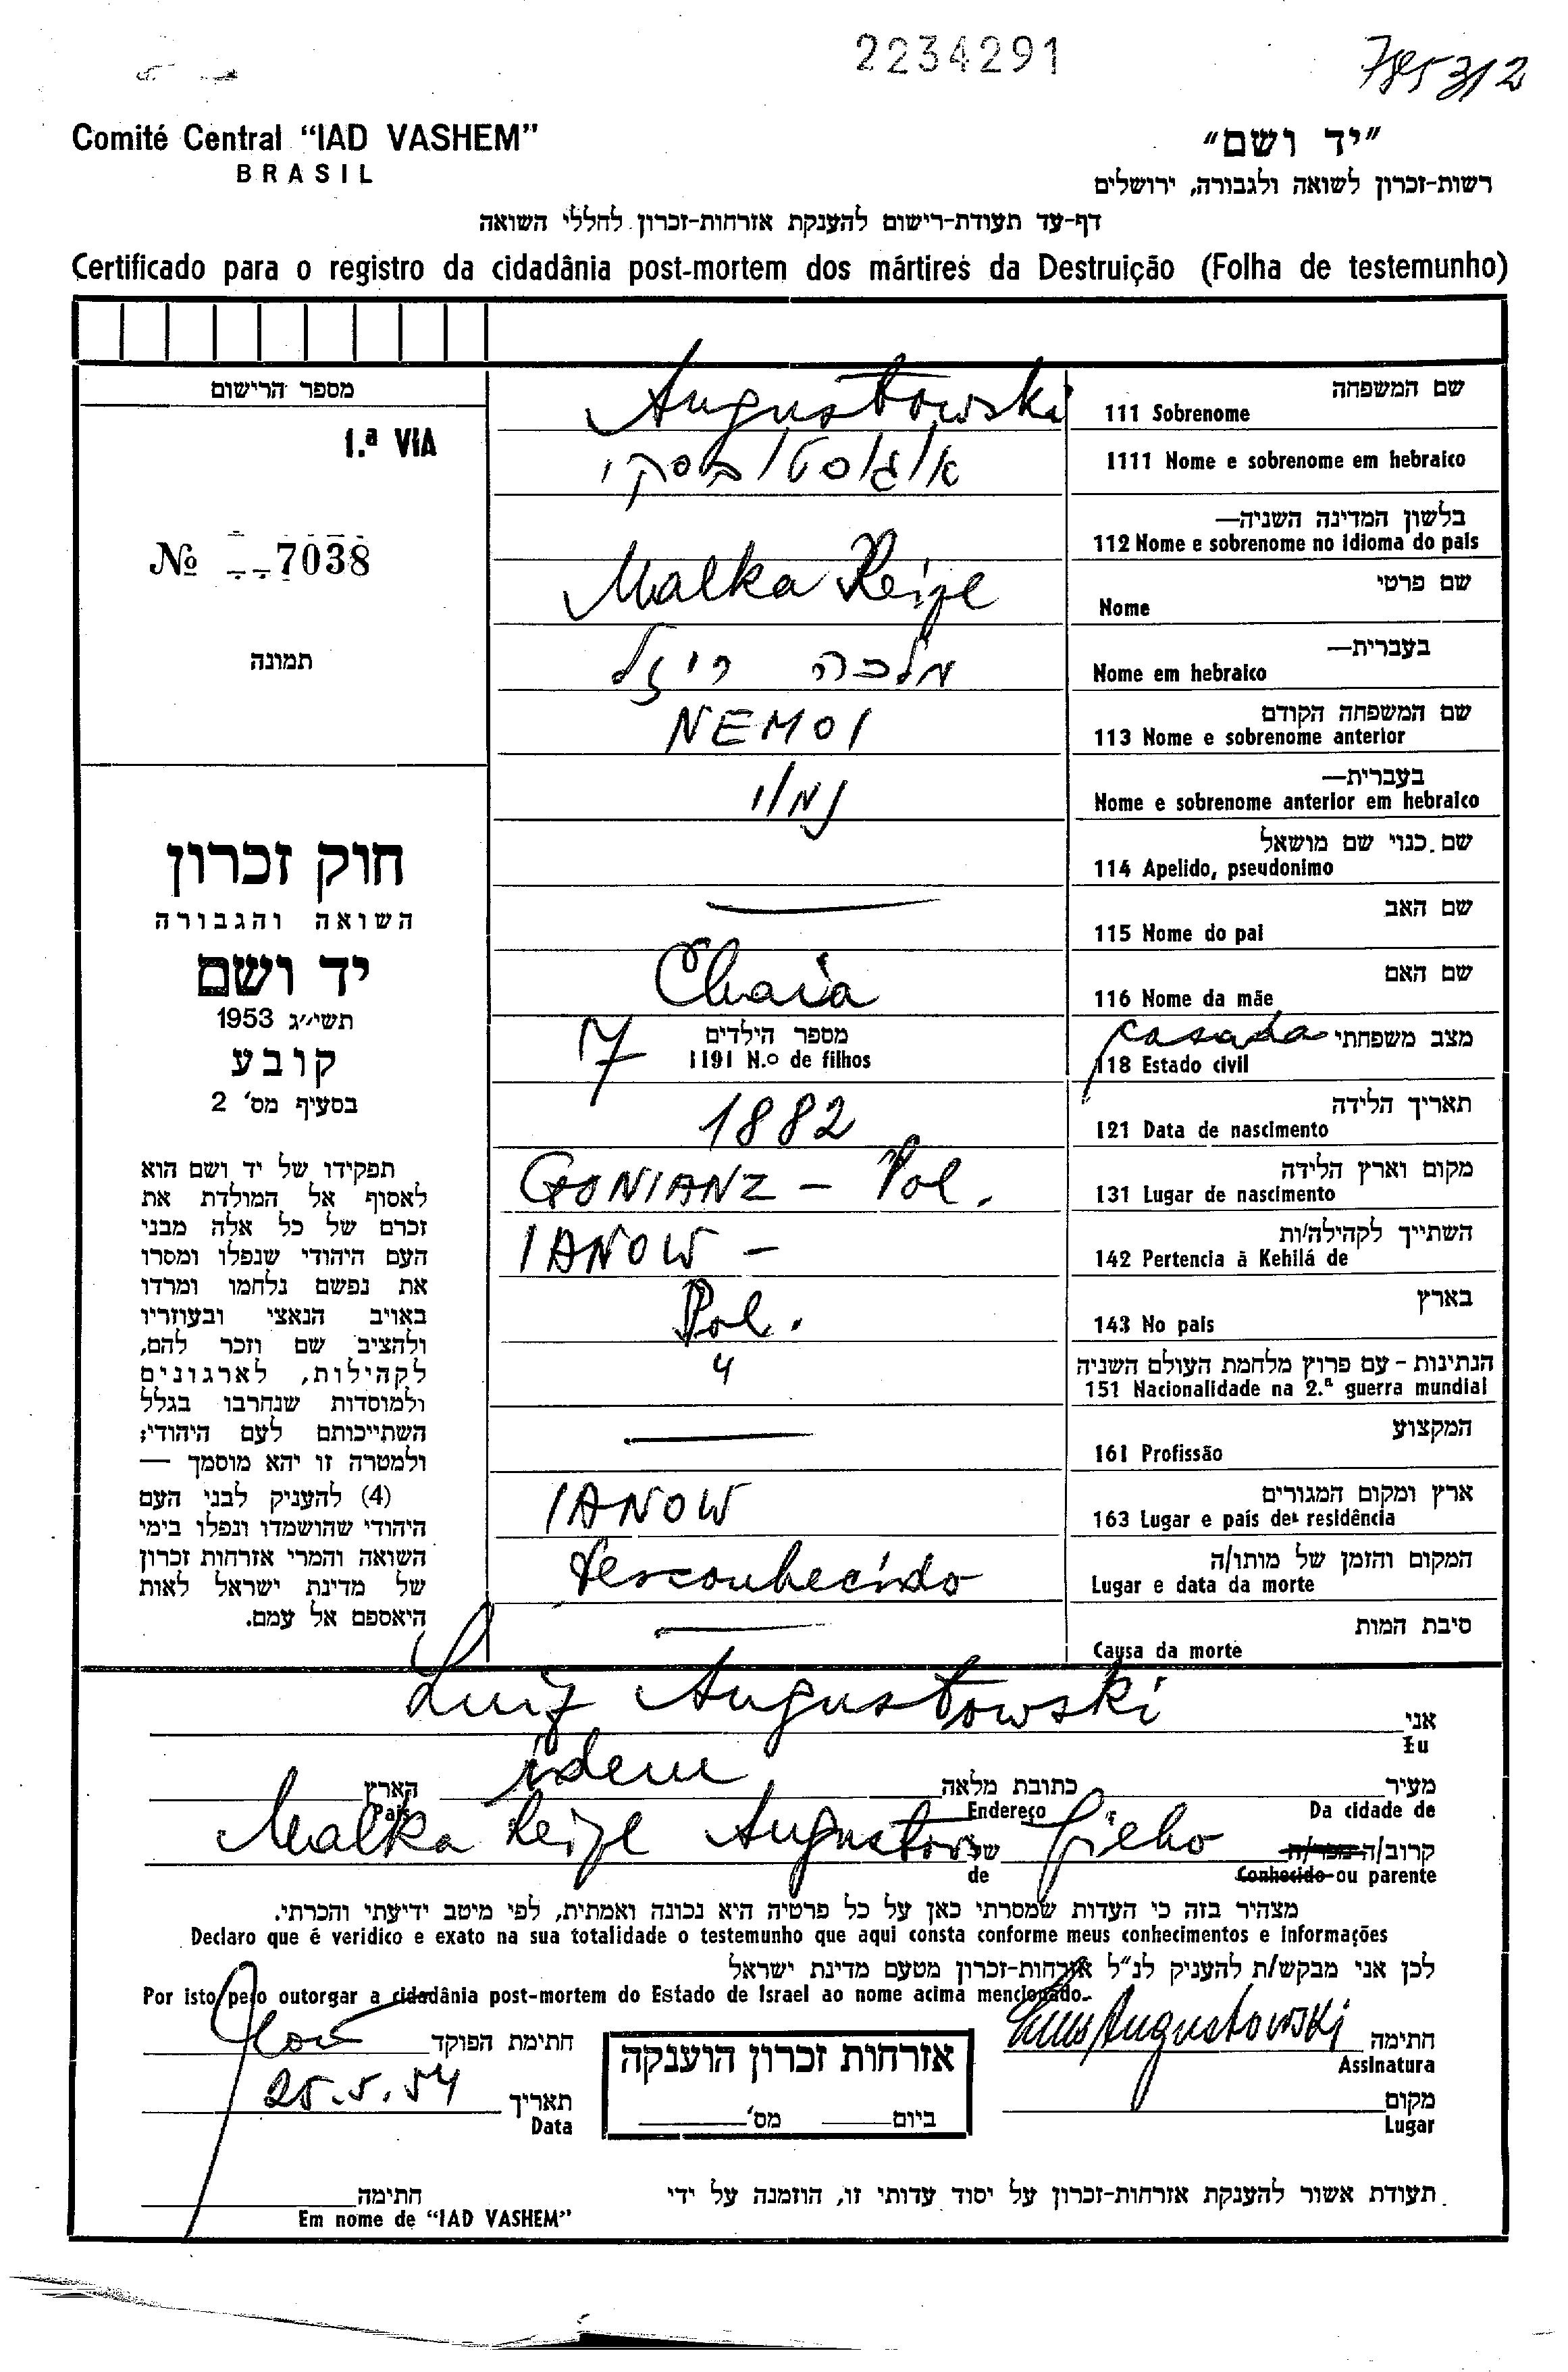 2234291
785312
Comité Central "IAD VASHEM"
BRASIL
"יד ושם"
רשות-זכרון לשואה ולגבורה, ירושלים
דף-עד תעודת-רישום להענקת אזרחות-זכרון לחללי השואה
Certificado para o registro da cidadânia post-mortem dos mártires da Destruição (Folha de testemunho)
מספר הרישום
1.ª VIA
№ 7038
תמונה
חוק זכרון
השואה והגבורה
יד ושם
תשי״ג 1953
קובע
בסעיף מס' 2
תפקידו של יד ושם הוא
לאסוף אל המולדת את
זכרם של כל אלה מבני
העם היהודי שנפלו ומסרו
את נפשם נלחמו ומרדו
באויב הנאצי ובעוזריו
ולהציב שם וזכר להם,
לקהילות, לארגונים
ולמוסדות שנחרבו בגלל
השתייכותם לעם היהודי;
ולמטרה זו יהא מוסמך —
(4) להעניק לבני העם
היהודי שהושמדו ונפלו בימי
השואה והמרי אזרחות זכרון
של מדינת ישראל לאות
היאספם אל עמם.
שם המשפחה
111 Sobrenome
Augustowski
1111 Nome e sobrenome em hebraico
אוגוסטובסקי
בלשון המדינה השניה—
112 Nome e sobrenome no idioma do pals
שם פרטי
Nome
Malka Reizl
בעברית—
Nome em hebraico
מלכה ריזל
שם המשפחה הקודם
113 Nome e sobrenome anterior
NEMOI
בעברית—
Nome e sobrenome anterior em hebraico
נמוי
שם.כנוי שם מושאל
114 Apelido, pseudonimo
שם האב
115 Nome do pai
שם האם
116 Nome da mãe
Chaia
מצב משפחתי
118 Estado civil
casada
מספר הילדים
1191 N.º de filhos
7
תאריך הלידה
121 Data de nascimento
1882
מקום וארץ הלידה
131 Lugar de nascimento
GONIANZ - Pol.
השתייך לקהילה/ות
142 Pertencia à Kehilá de
IANOW -
בארץ
143 No pals
Pol.
הנתינות - עם פרוץ מלחמת העולם השניה
151 Nacionalidade na 2.ª guerra mundial
המקצוע
161 Profissão
ארץ ומקום המגורים
163 Lugar e país de residência
IANOW
המקום והזמן של מותו/ה
Lugar e data da morte
desconhecido
סיבת המות
Causa da morte
אני
Eu
Luiz Augustowski
מעיר
Da cidade de
כתובת מלאה
Endereço
idem
הארץ
País
קרוב/ה מכר/ה
Conhecido ou parente
filho
של
de
Malka Reizl Augustows
מצהיר בזה כי העדות שמסרתי כאן על כל פרטיה היא נכונה ואמתית, לפי מיטב ידיעתי והכרתי.
Declaro que é veridico e exato na sua totalidade o testemunho que aqui consta conforme meus conhecimentos e informações
לכן אני מבקש/ת להעניק לנ״ל אזרחות-זכרון מטעם מדינת ישראל
Por isto peço outorgar a cidadânia post-mortem do Estado de Israel ao nome acima mencionado.
חתימה
Assinatura
Luis Augustowski
מקום
Lugar
אזרחות זכרון הוענקה
ביום מס'
חתימת הפוקד
תאריך
Data
25.5.54
תעודת אשור להענקת אזרחות-זכרון על יסוד עדותי זו, הוזמנה על ידי
חתימה
Em nome de "IAD VASHEM"